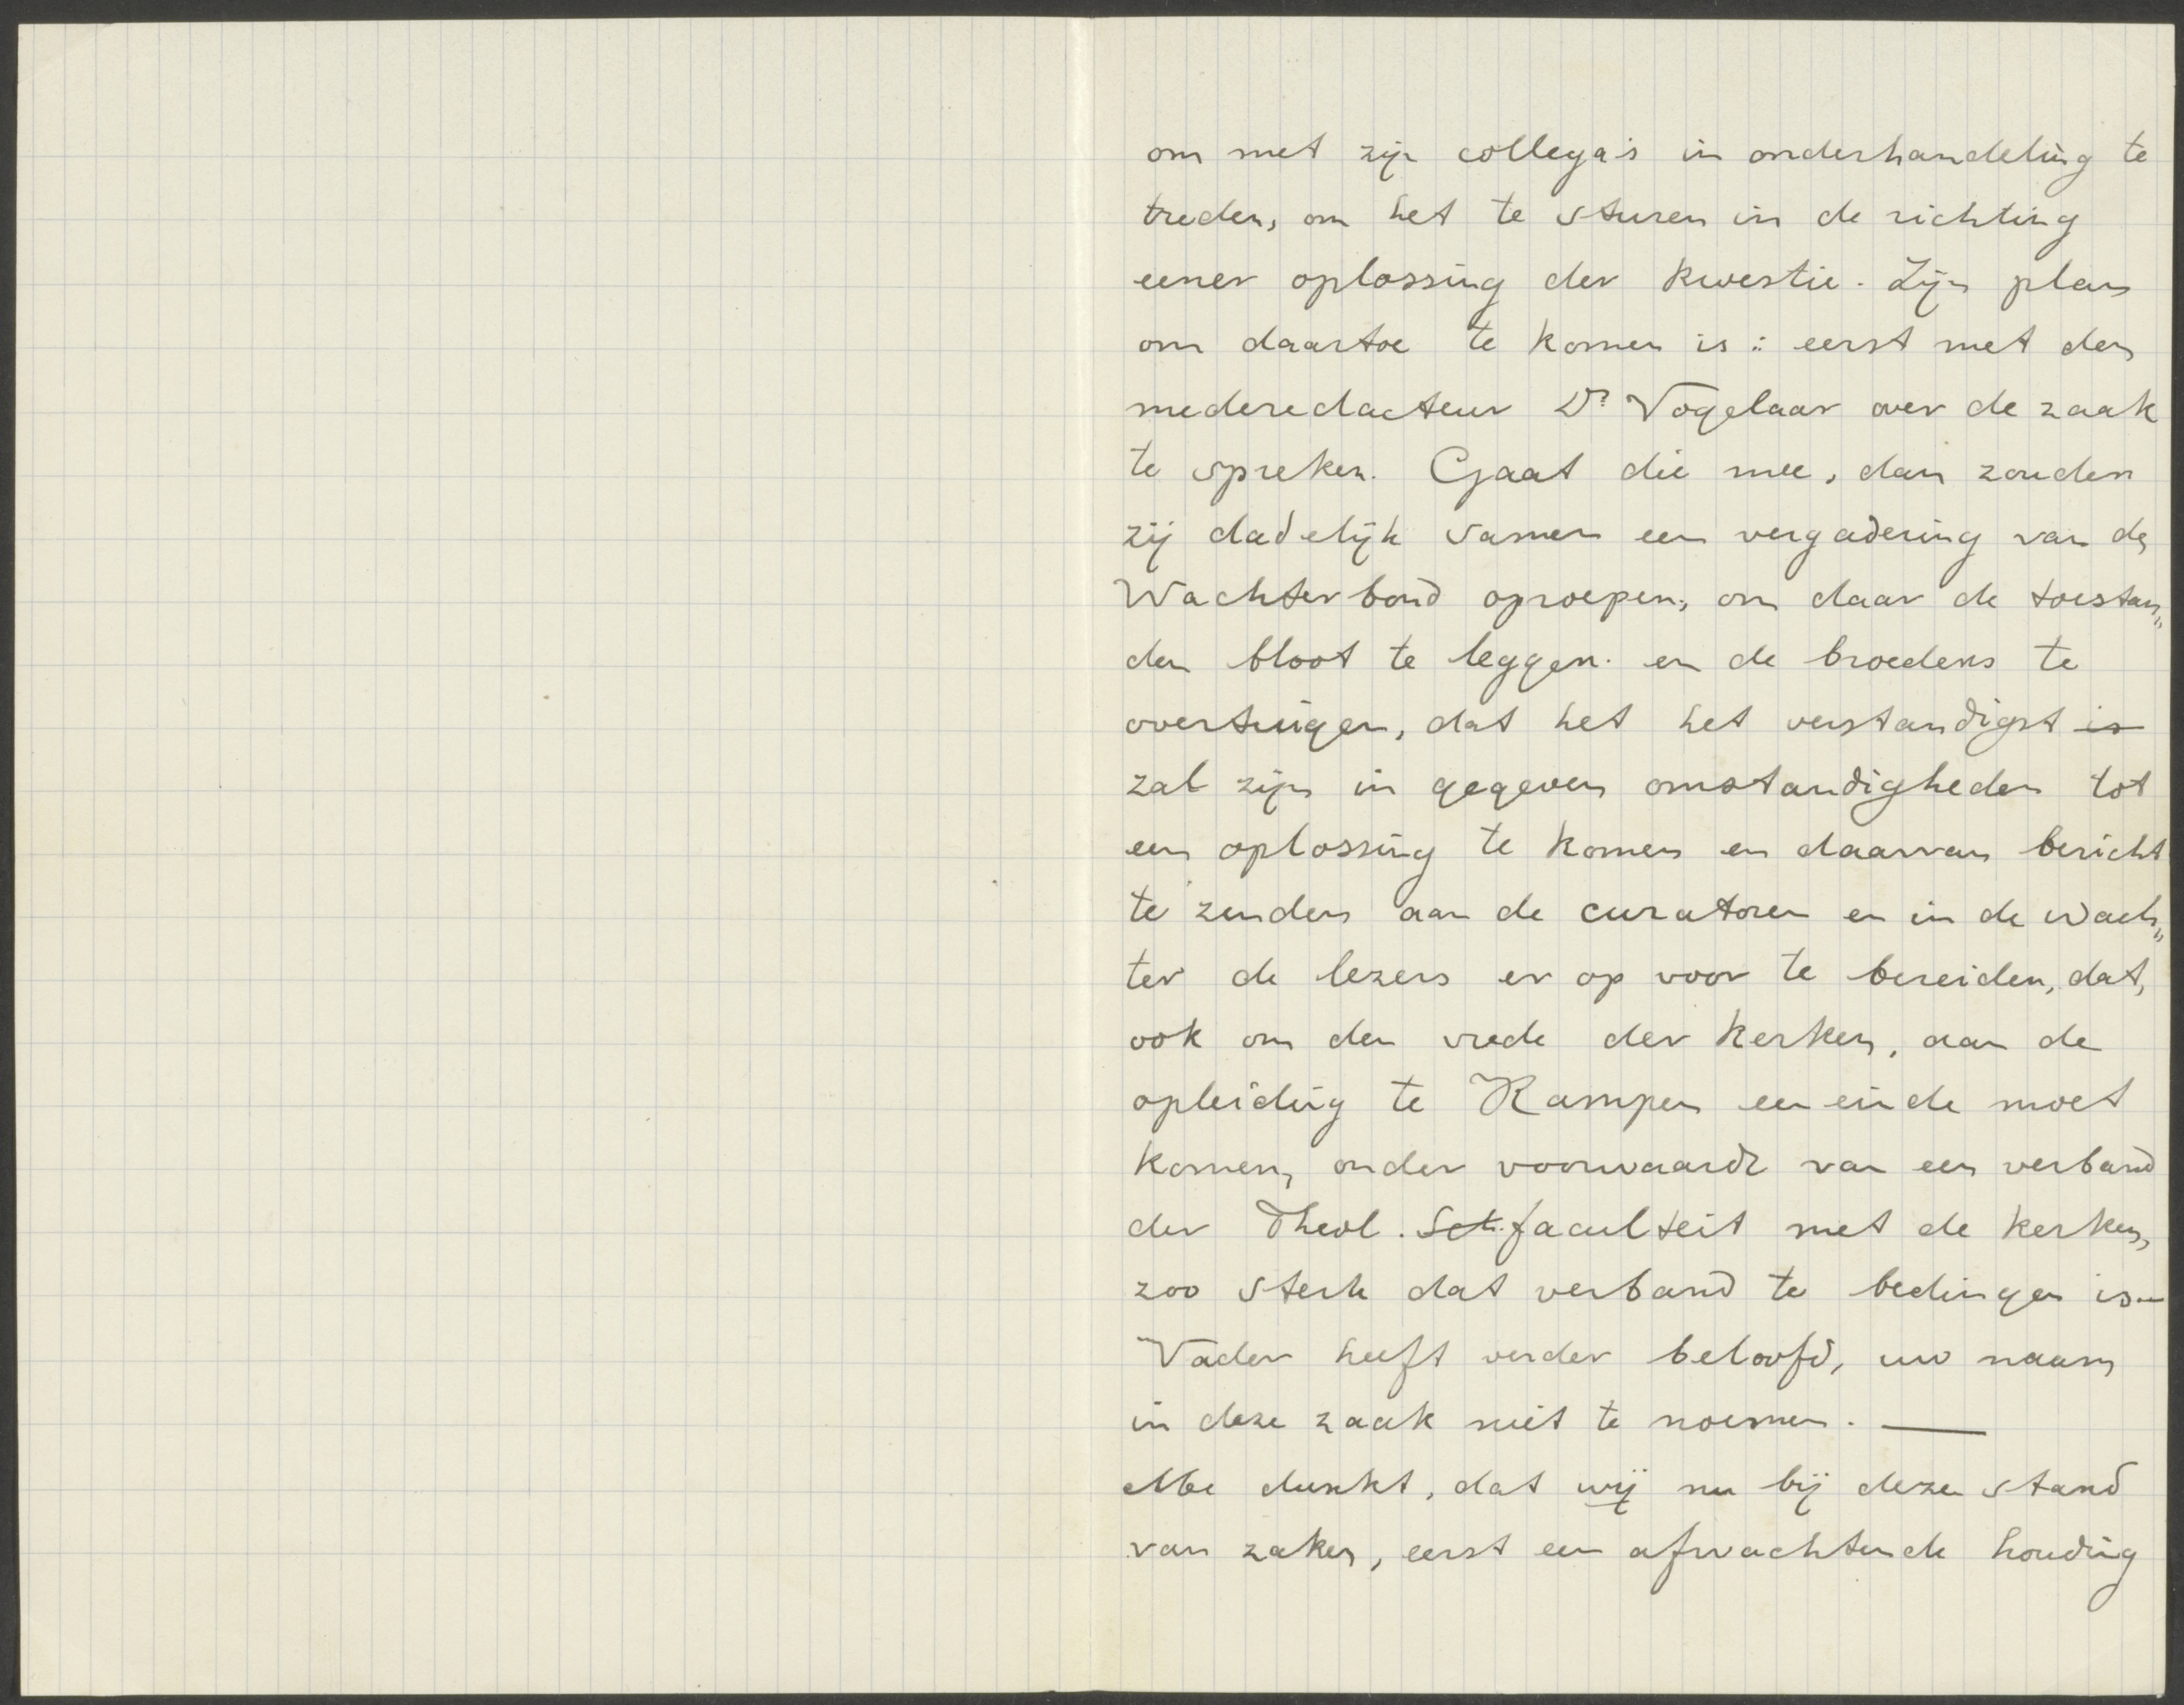 om met zijn collega's in onderhandeling te
treden, om het te sturen in de richting
eener oplossing der kwestie. Zijn plan
om daartoe te komen is: eerst met den
mederedacteur Ds. Vogelaar over de zaak
te spreken. Gaat die mee, dan zouden
zij dadelijk samen een vergadering van de
Wachterbond oproepen, om daar de toestan„
den bloot te leggen en de broeders te
overtuigen, dat het het verstandigst is
zal zijn in gegeven omstandigheden tot
een oplossing te komen en daarvan bericht
te zenden aan de curatoren en in de Wach„
ter de lezers er op voor te bereiden, dat,
ook om den vrede der kerken, aan de
opleiding te Kampen een einde moet
komen, onder voorwaarde van een verband
der Theol. Sch. faculteit met de kerken,
zoo sterk dat verband te bedingen is.—
Vader heeft verder beloofd, uw naam
in deze zaak niet te noemen. —
Me dunkt, dat wij nu bij dezen stand
van zaken, eerst een afwachtende houding